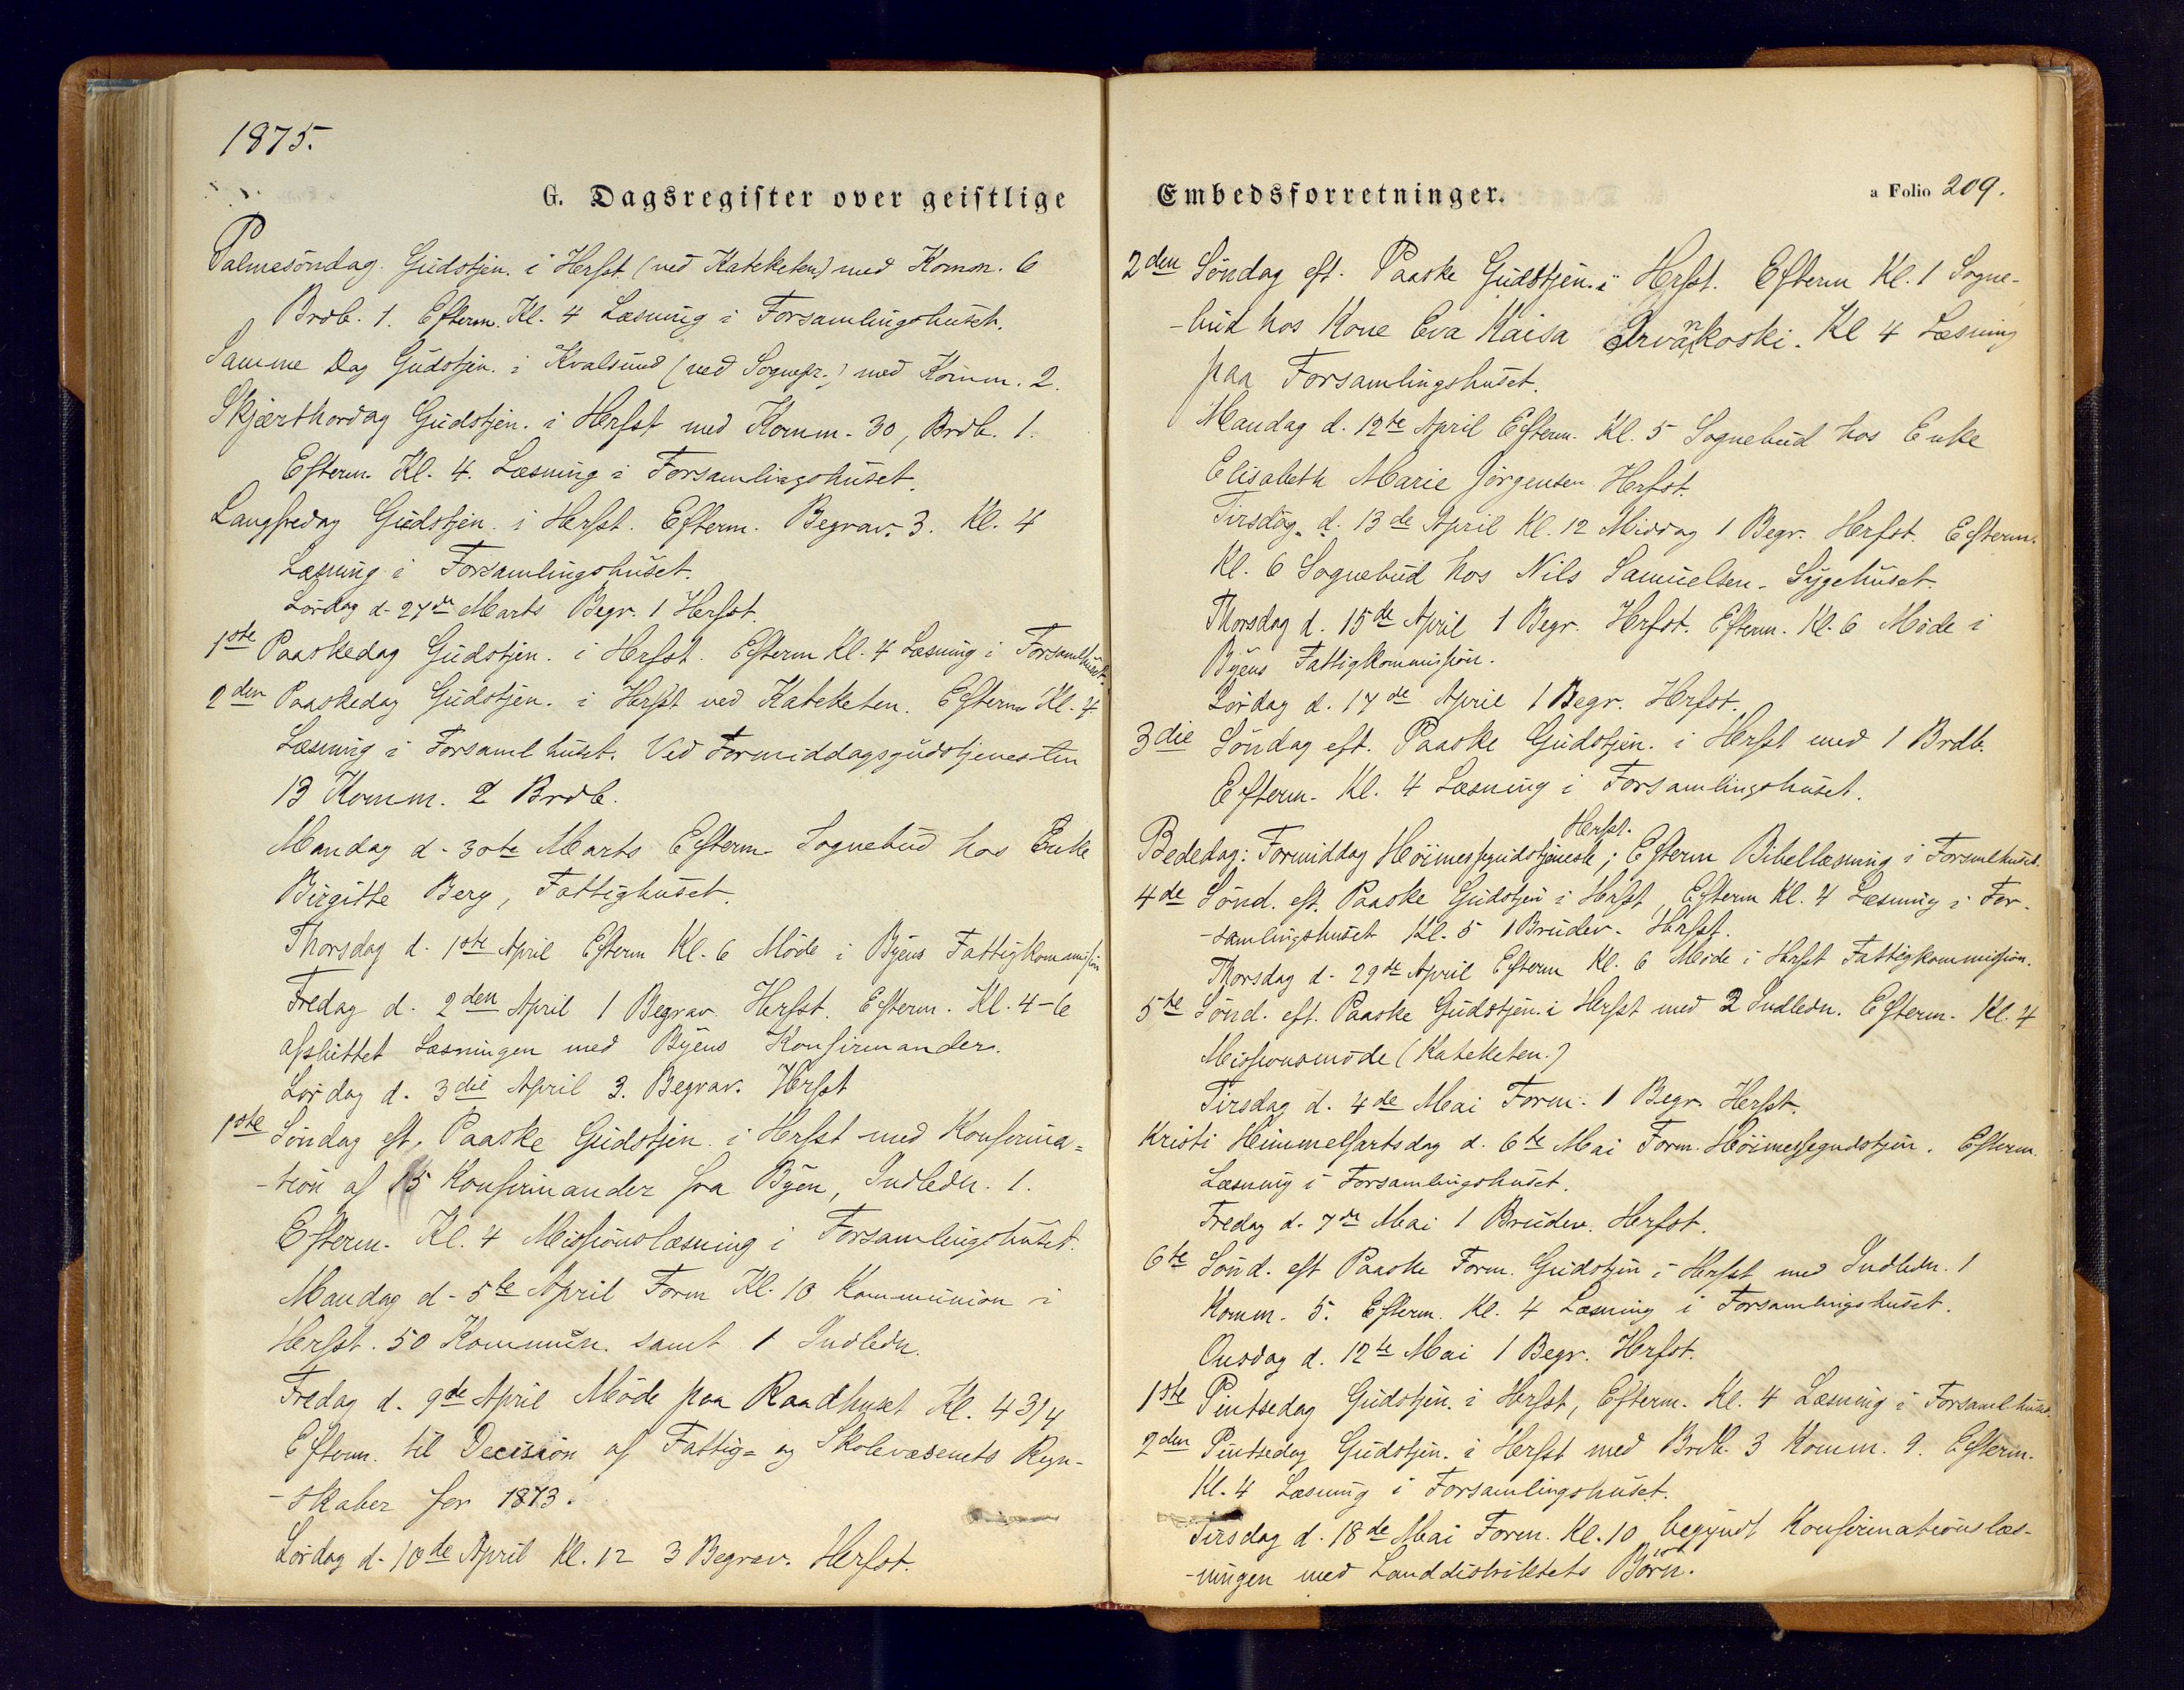 1875.
G. Dagsregister over geistlige
Palmesöndag. Gudstjen. i Hfst. (ved Kateketen) med Komm. 6
Brdb. 1. Efterm. Kl. 4 Læsning i Forsamlingshuset.
Samme Dag Gudstjen. i Kvalsund (ved Sognepr.) med Komm. 2.
Skjærthordag Gudstjen. i Hfst med Komm. 30, Brdb. 1.
Efterm. Kl. 4. Læsning i Forsamlingshuset.
Langfredag Gudstjen. i Hfst. Efterm. Begrav. 3. Kl. 4
Læsning i Forsamlingshuset.
Lördag d. 27de Marts Begr. 1 Hfst.
1ste Paaskedag Gudstjen. i Hfst. Efterm Kl. 4 Læsning i Forsamlhuset.
2den Paaskedag Gudstjen. i Hfst ved Kateketen. Efterm Kl. 4
Læsning i Forsamlhuset. Ved Formiddagsgudstjenesten
13 Komm. 2 Brdb.
Mandag d. 30te Marts Efterm. Sognebud hos Enke
Birgitte Berg, Fattighuset.
Thorsdag d. 1ste April Efterm Kl. 6 Möde i Byens Fattigkommission
Fredag d. 2den April 1 Begrav. Hfst. Efterm. Kl. 4-6
afsluttet Læsningen med Byens Konfirmander.
Lördag d. 3die April 3. Begrav. Hfst
1ste Söndag eft. Paaske Gudstjen. i Hfst med Konfirma=
-tion af 15 Konfirmander fra Byen, Indledn. 1.
Efterm. Kl. 4 Missionslæsning i Forsamlingshuset.
Mandag d. 5te April Form Kl. 10 Kommunion i
Hfst. 50 Kommun. samt 1 Indledn.
Fredag d. 9de April Möde paa Raadhuset Kl. 4 3/4
Efterm. til Decision af Fattig= og Skolevæsenets Regn-
-skaber for 1873.
Lördag d. 10de April Kl. 12 3 Begrav. Hfst.
Embedsforretninger.
a Folio 209.
2den Söndag eft. Paaske Gudstjen. i Hfst. Efterm Kl. 1 Sogne-
-bud hos Kone Eva Kaisa Ervänkoski. Kl 4 Læsning
paa Forsamlingshuset.
Mandag d. 12te April Efterm. Kl. 5 Sognebud hos Enke
Elisabeth Marie Jörgensen Hfst.
Tirsdag d. 13de April Kl. 12 Middag 1 Begr. Hfst. Efterm.
Kl. 6 Sognebud hos Nils Samuelsen. Sygehuset.
Thorsdag d. 15de April 1 Begr. Hfst. Efterm. Kl. 6 Möde i
Byens Fattigkommission.
Lördag d. 17de April 1 Begr. Hfst.
3die Söndag eft. Paaske Gudstjen. i Hfst med 1 Brdb.
Efterm. Kl. 4 Læsning i Forsamlingshuset.
Hfst.
Bededag: Formiddag Höimessegudstjeneste; Efterm Bibellæsning i Forsmlhuset.
4de Sönd. eft. Paaske Gudstjen i Hfst, Efterm Kl. 4 Læsning i For-
-samlingshuset Kl. 5 1 Brudev. Hfst.
Thorsdag d. 29de April Efterm Kl. 6 Möde i Hfst Fattigkommission.
5te Sönd. eft. Paaske Gudstjen. i Hfst med 2 Indledn. Efterm. Kl. 4
Missionsmöde (Kateketen.)
Tirsdag d. 4de Mai Form. 1 Begr. Hfst.
Kristi Himmelfartsdag d. 6te Mai Form. Höimessegudstjen. Efterm.
Læsning i Forsamlingshuset.
Fredag d. 7de Mai 1 Brudev. Hfst.
6te Sönd. eft Paaske Form. Gudstjen i Hfst med Indledn. 1
Komm. 5. Efterm. Kl. 4 Læsning i Forsamlingshuset.
Onsdag d. 12te Mai 1 Begr. Hfst.
1ste Pintsedag Gudstjen. i Hfst, Efterm. Kl. 4 Læsning i Forsamlhuset.
2den Pintsedag Gudstjen. i Hfst med Brdb. 3 Komm. 9. Efterm.
Kl. 4 Læsning i Forsamlingshuset.
Tirsdag d. 18de Mai Form. Kl. 10 begyndt Konfirmationslæs-
-ningen med Landdistriktets Börn.